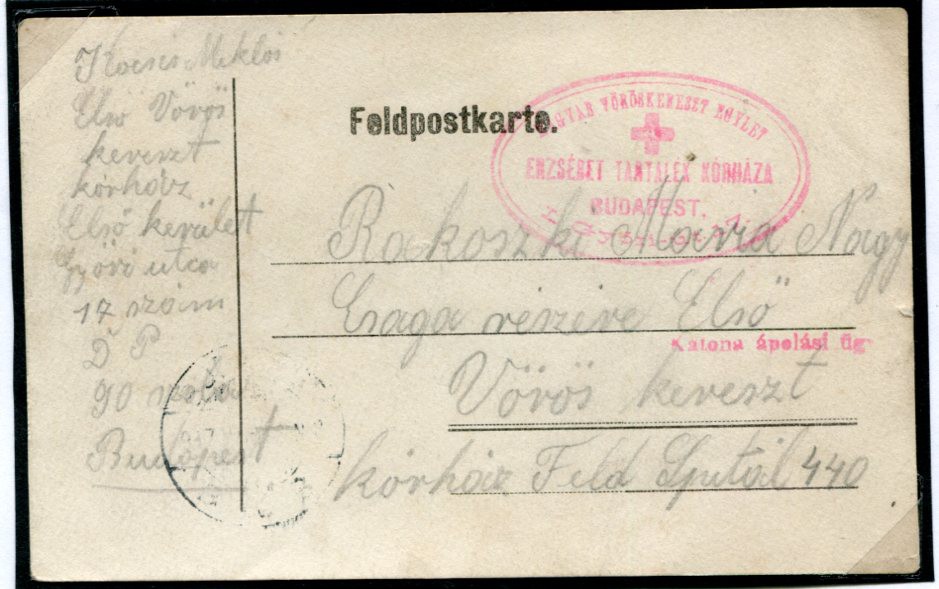 Kocsis Miklós
Első Vörös
kereszt
kórház
Első kerület
Győri utca
17 szám
D P
90
Budapest
Feldpostkarte.
MAGYAR VÖRÖSKERESZT EGYLET
ERZSÉBET TARTALÉK KÓRHÁZA
BUDAPEST,
Rakoszki Mária Nagy
sága részire Első
Katona ápolási ügy
Vörös kereszt
kórház Feld Spitál 440